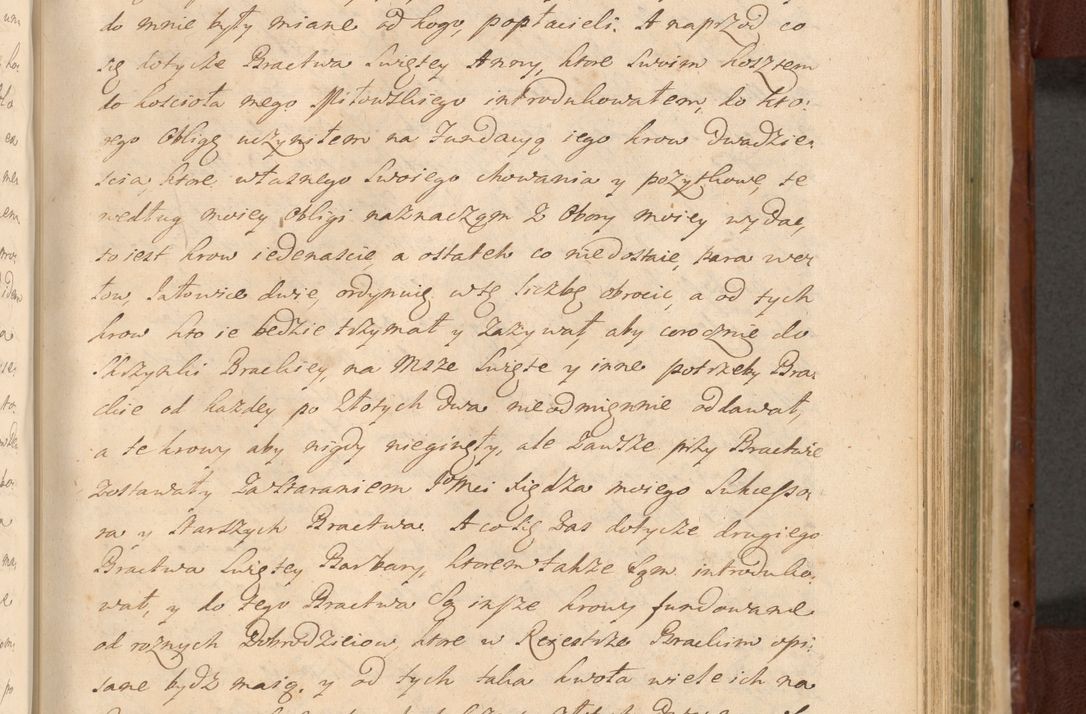 do mnie były miane od kogo, popłacieli. A naprzod co
się dotycze Bractwa Swiętey Anny, ktore swoim kosztem
do koscioła mego Miłowskiego introdukowałem, do kto:
rego obligę uczyniłem na Fundacyą iego krow dwadzie:
scia, ktore własnego swoiego chowania y pozytkowe, te
według moiey obligi naznaczam z Obory moiey wydać,
to iest krow iedenascie, a ostatek co niedostaie, para wer
tow, Jałowice dwie, ordynuię w tę liczbę obrocić, a od tych
krow kto ie będzie trzymał y zazywał, aby corocznie do
Skrzynki Brackiey, na Msze Swięte y inne potrzeby Bra:
ckie od kazdey po złotych dwa nieodmiennie oddawał,
a te krowy aby nigdy nieginęły, ale zawsze przy Bractwie
zostawały za staraniem JoMci Xiędza moiego Sukcesso:
ra, y starszych Bractwa. A co się zas dotycze drugiego
Bractwa Swiętey Barbary, ktorem także sąm introduko:
wał, y do tego Bractwa są insze krowy fundowane
od roznych Dobrodzieiow, ktore w Reiestrze Brackim opi:
sane bydz maią. y od tych taka kwota wiele ich na